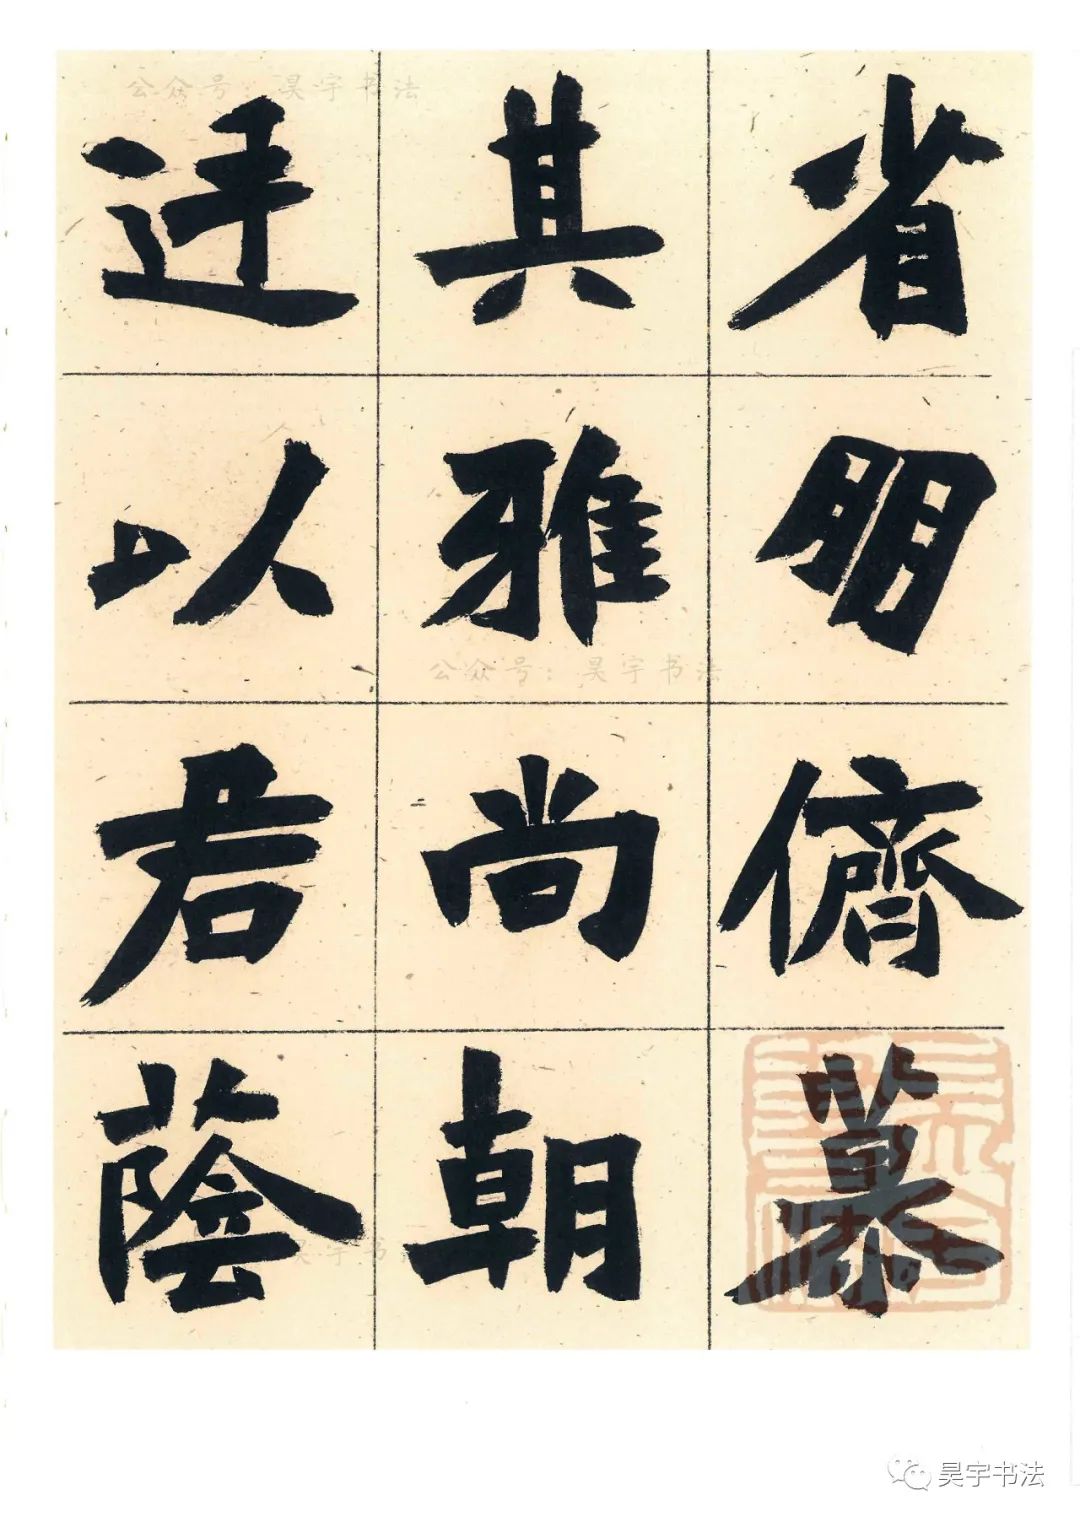 省明儕慕
其雅尚朝
廷以君蔭
公众号:昊宇书法
公众号:昊宇书法
昊宇书法
昊宇书法